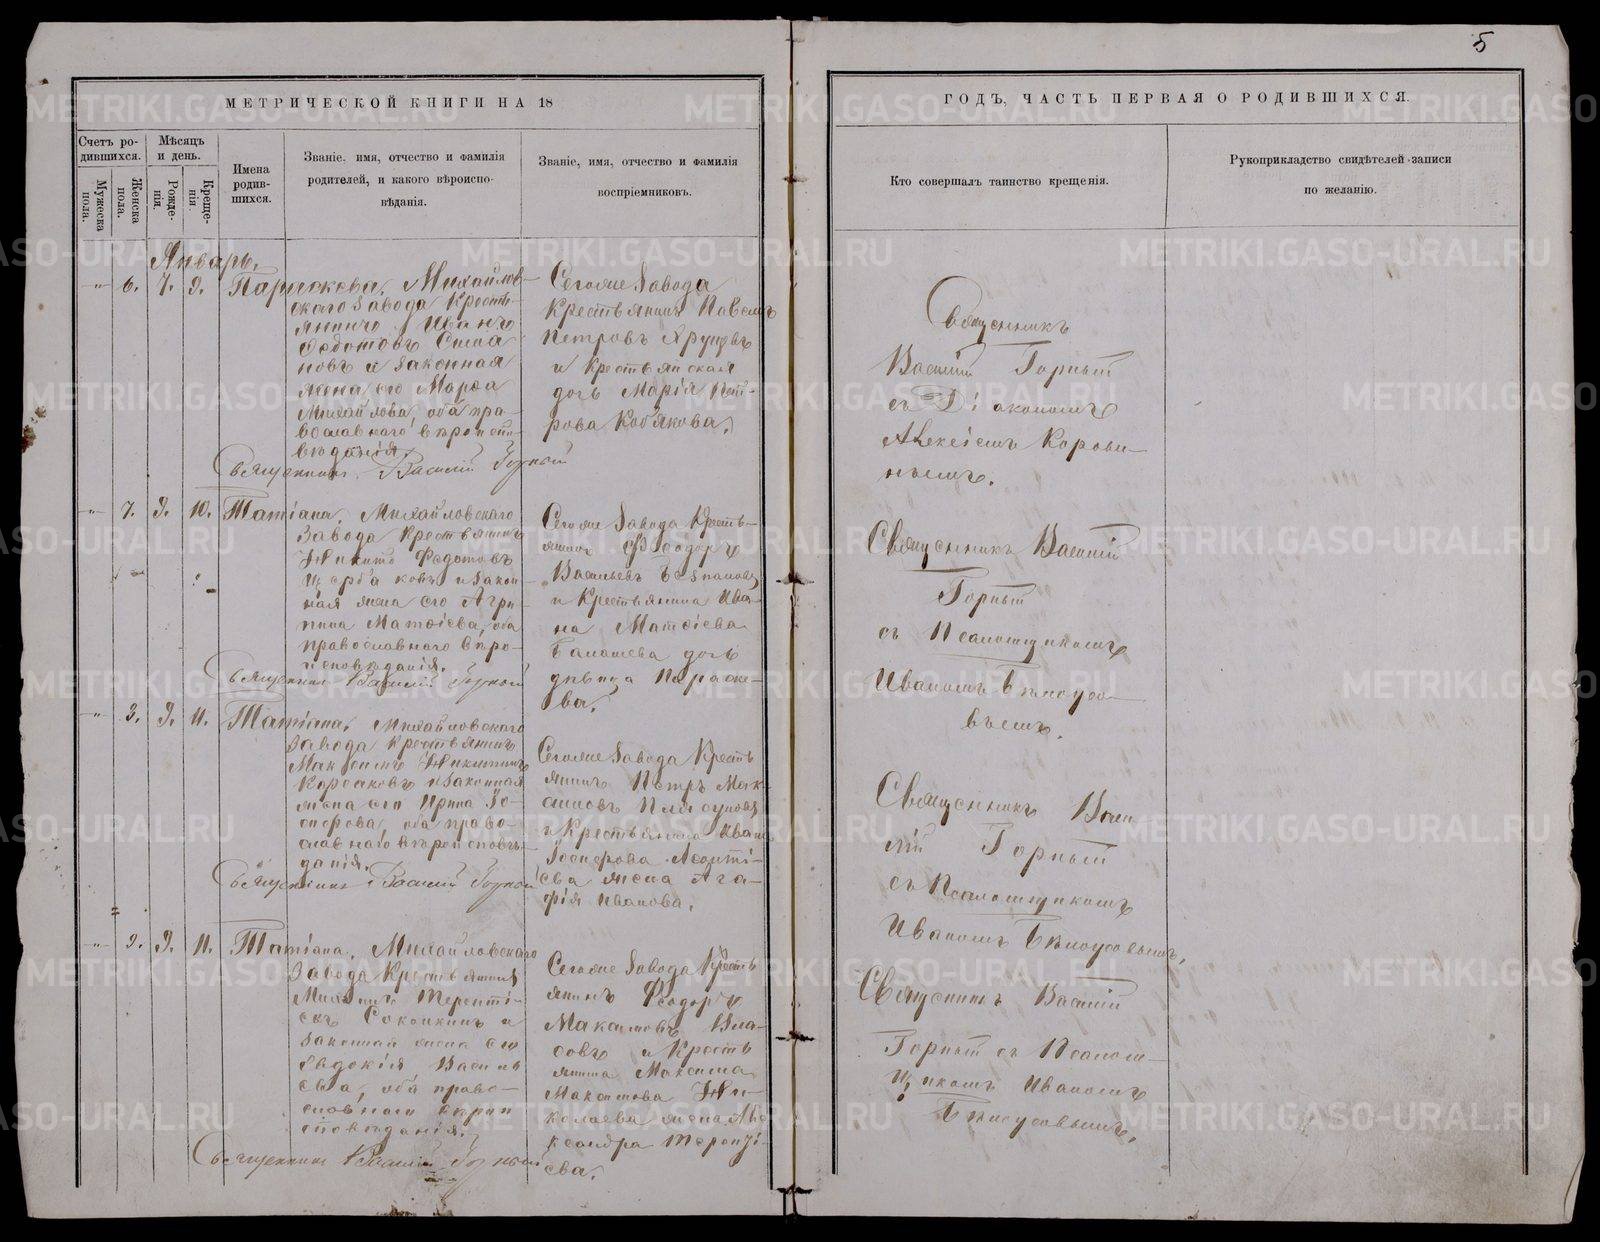 5
МЕТРИЧЕСКОЙ КНИГИ НА 18
ГОДЪ, ЧАСТЬ ПЕРВАЯ О РОДИВШИХСЯ.
Счетъ ро-
дившихся.
Мужеска
пола.
Женска
пола.
Мѣсяцъ
и день.
Рожде-
нія.
Креще-
нія.
Имена
родив-
шихся.
Званіе, имя, отчество и фамилія
родителей, и какого вѣроиспо-
вѣданія.
Званіе, имя, отчество и фамилія
воспріемниковъ.
Кто совершалъ таинство крещенія.
Рукоприкладство свидѣтелей записи
по желанію.
Январь.
6. 7. 9. Параскева, Михайлов-
скаго завода Кресть-
янинъ Иванъ
Федотовъ
новъ и законная
жена его Марѳа
Михайлова, оба пра-
вославнаго вѣроиспо-
вѣданія.
Священникъ Василій Горный
Тогоже завода
Крестьянинъ Павелъ
Петровъ
и Крестьянская
дочь Марія Пет-
рова Кобякова.
Священникъ
Василій Горный
съ Діакономъ
Алексіемъ Корови-
нымъ.
7. 9. 10. Татіана, Михайловскаго
завода Крестьянинъ
Никита Федотовъ
Щербаковъ и закон-
ная жена его Агри-
пина Матѳіева, оба
православнаго вѣро-
исповѣданія.
Священникъ Василій Горный
Тогоже завода Кресть-
янинъ Ѳеодоръ
Васильевъ
и Крестьянина Ива-
на Матѳіева
Балашева дочь
дѣвица Параске-
ва.
Священникъ Василій
Горный
съ Псаломщикомъ
Иваномъ Бѣлоусо-
вымъ.
9. 11. Татіана, Михайловскаго
завода Крестьянинъ
Максимъ Никитинъ
и законная
жена его Ирина
оба право-
славнаго вѣроисповѣ-
данія.
Священникъ Василій Горный
Тогоже завода Кресть-
янинъ Петръ Мак-
симовъ
и Крестьянина Ивана
жена Ага-
фія Иванова.
Священникъ Васи-
лій Горный
съ Псаломщикомъ
Иваномъ Бѣлоусовымъ.
9. 9. 11. Татіана, Михайловскаго
завода Крестьянинъ
Терентіевъ
и
законная жена его
Евдокія Василь-
ева, оба право-
славнаго вѣрои-
сповѣданія.
Священникъ Василій Горный
Тогоже завода Кресть-
янинъ Ѳеодоръ
Максимовъ Вла-
совъ и Кресть-
янина Максима
Максимова Ни-
колаева жена Але-
ксандра Теренті-
ева.
Священникъ Василій
Горный съ Псалом-
щикомъ Иваномъ
Бѣлоусовымъ.
METRIKI.GASO-URAL.RU